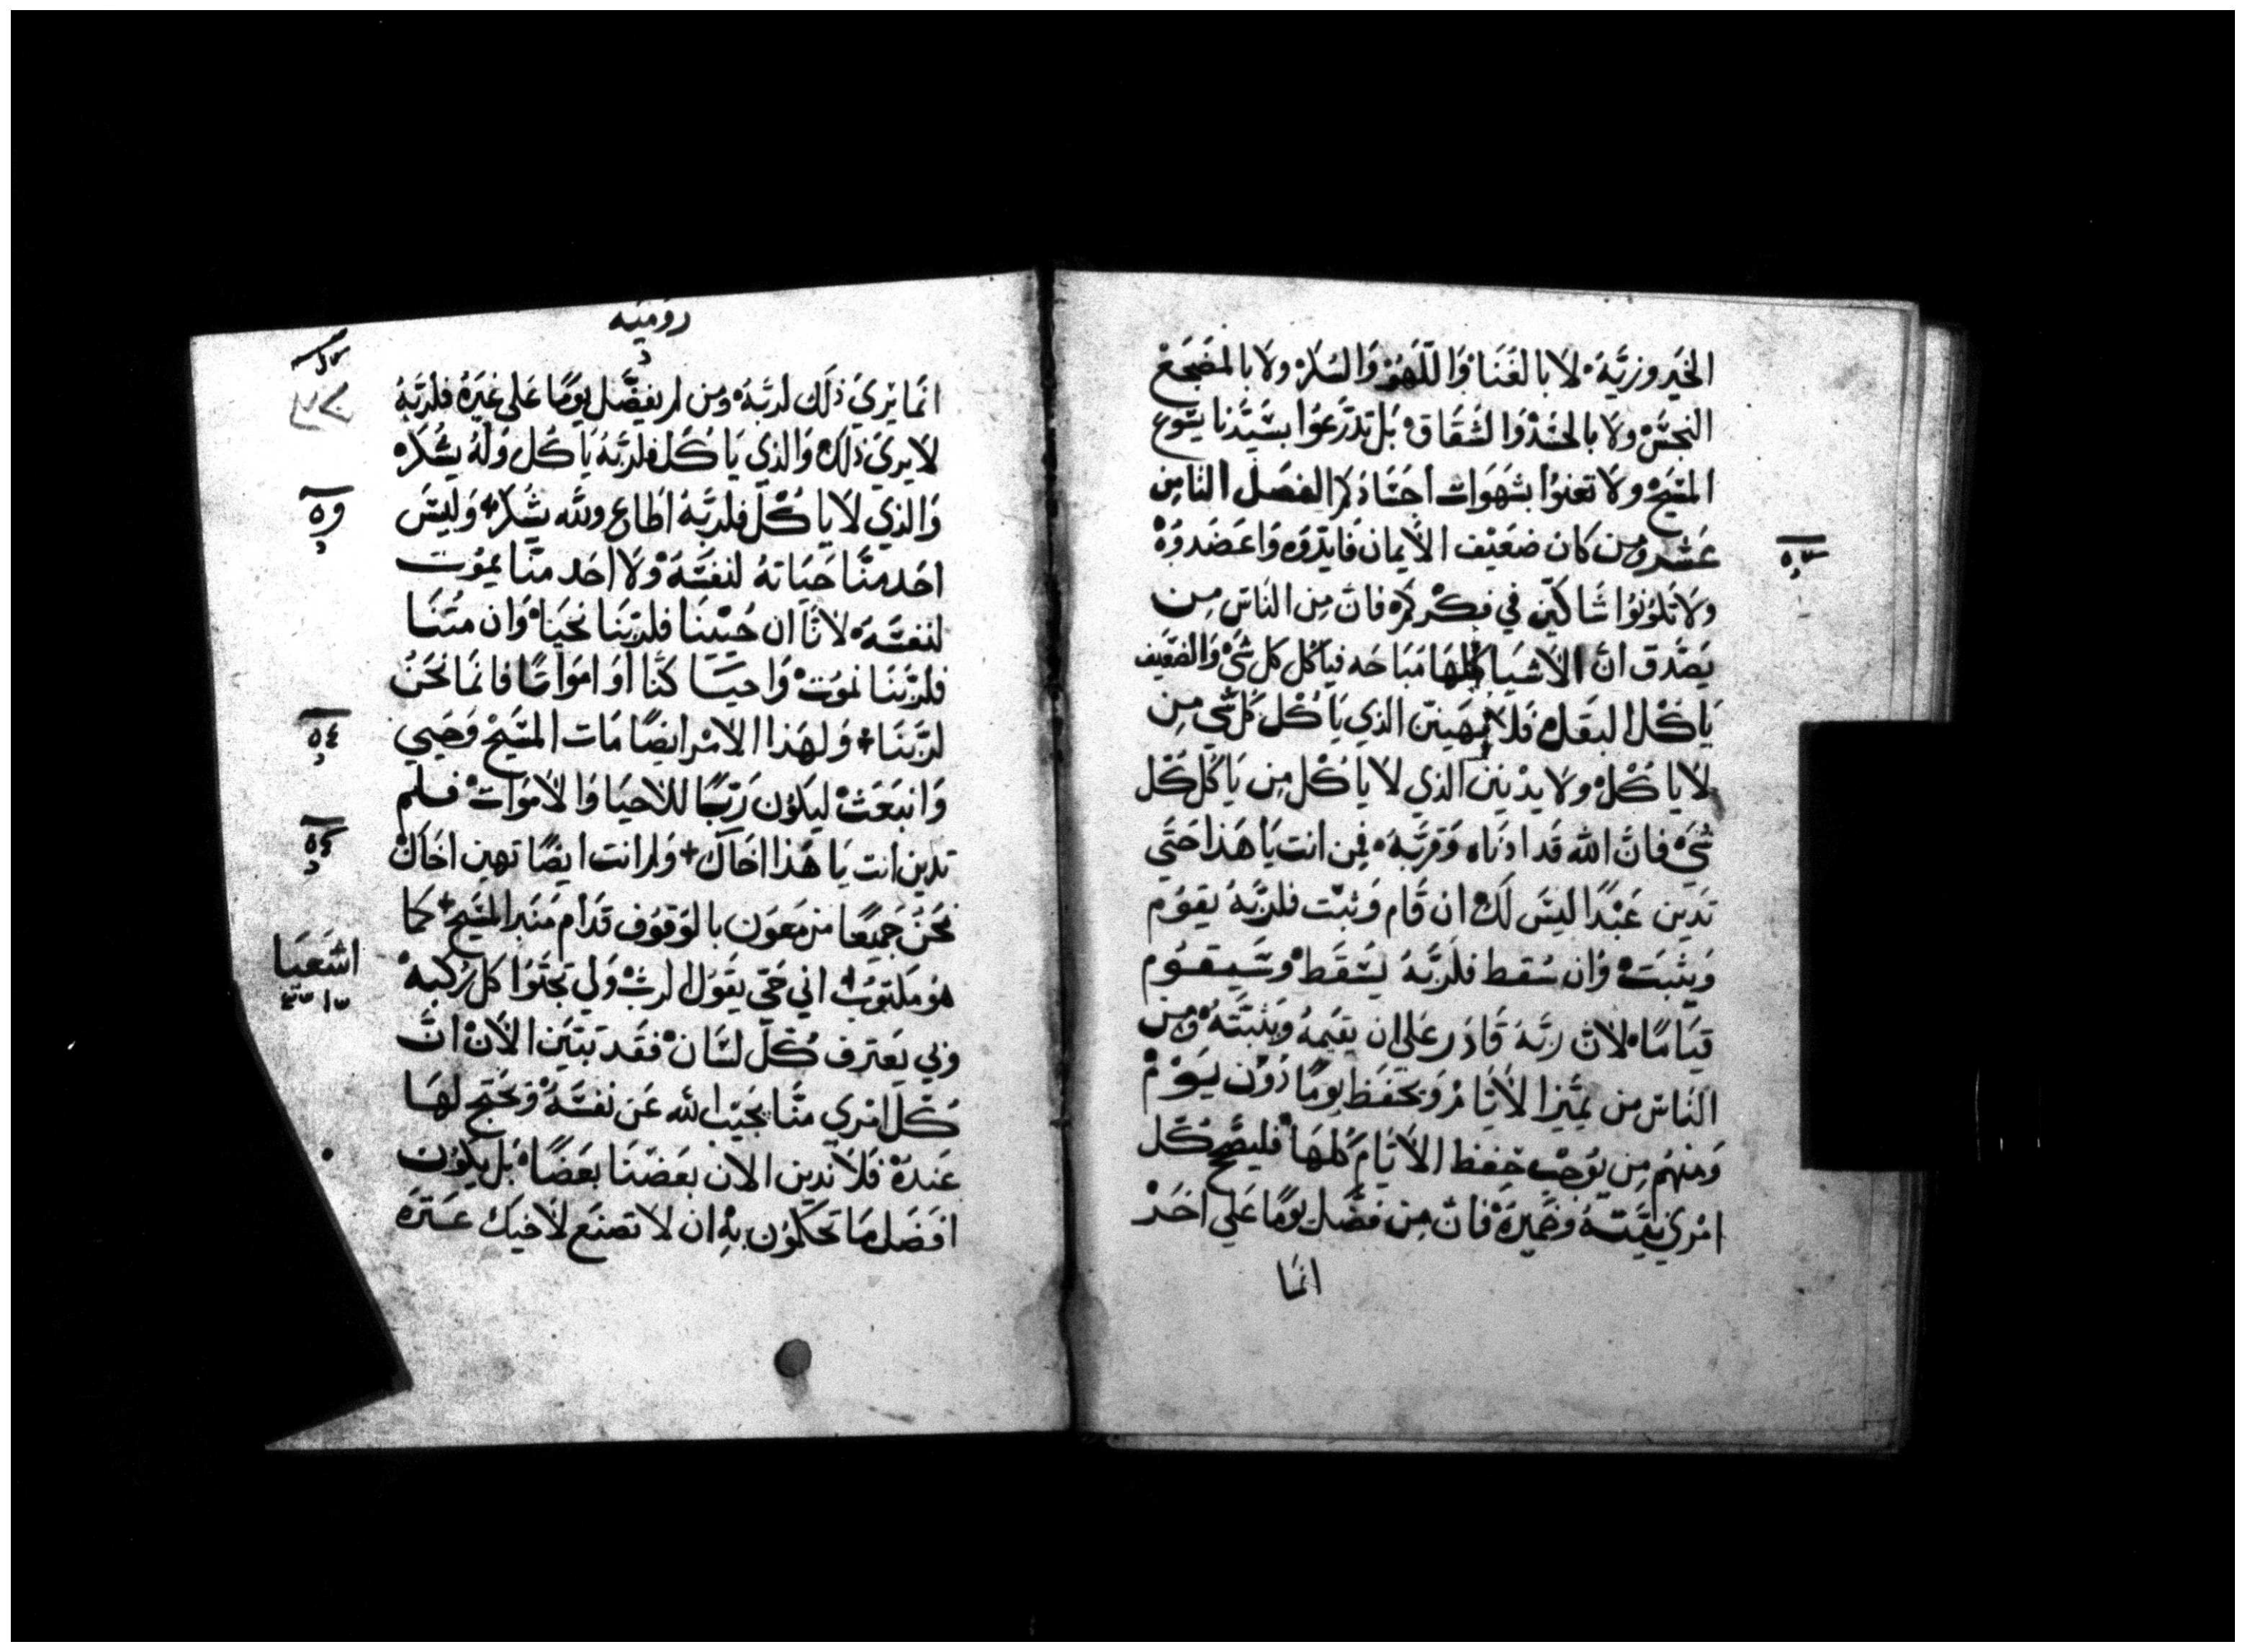 الخير وزيَّه لا بالغنا وَاللهو وَالسكر ولا بالمضجع
النجس ولا بالحسد وَالشقاق بَل تدرعُوا بسَيّدنا يسوع
المسيح ولا تعنوا بشهوات اجسَادكم الفصل الثامن
عشر ومن كان ضعيف الأيمان فايدوه وَاعضدوه
ولا تكونوا شاكين في فكركم فان من الناس من
يصَدق ان الاشيا كلها مبَاحه فياكل كل شي وَالضعيف
يَاكل البقل فلا يهينن الذي يَاكل كل شي من
لا ياكل ولا يدينن الذي لا ياكل من يَاكل كل
شي فان الله قد ادناه وَقربه فمن انت يَا هذا حَتي
تدين عَبدًا ليسَ لك ان قام وَثبت فلربه يقوم
وَيثبت وَان سقط فلربّهُ يسقط وسَيقوم
قيَامًا لان ربّه قادر علي ان يقيمه ويثبته ومن
الناس من يميز الأيام وَيحفظ يومًا دون يَوم
وَمنهم من يوجب حفظ الأيام كلها فليصح كل
امري نيته وضميره فان من فضل يومًا عَلي احد
انما
٥٣
روميَه
انما يري ذلك لربه ومن لم يفضّل يومًا عَلي غيَره فلربّهُ
لا يري ذلك وَالذي يَاكل فلربّه يَاكل وَلهُ يشكر
وَالذي لا ياكل فلربَّهُ اطاع ولله يشكر وَليسَ
احَد منَّا حَيَاتهُ لنفسَهُ ولا احَد منّا يموت
لنفسَه لانّا ان حَيينا فلربّنا نحيَا وَان متنَا
فلربّنَا نموت وَاحيَا كنّا اوَ امواتًا فانما نَحنُ
لربّنَا وَلهَذا الامر ايضًا مَات المسَيح وَحَيي
وَانبعَث ليكون رَبًا للاحيَا وَالأموَات فلم
تدين انت يَا هَذا اخَاك وَلم انت ايضًا تهين اخَاك
نحَن جَميعًا مزمعَون بالوقوف قدام منبر المسَيح كما
هو مكتوب اني حَي يقول الرب وَلي تجثوا كل ركبه
وَبي يعترف كل لسَان فقد تبيّن الأن انَّ
كل امري منّا يجيب الله عَن نفسَهُ وَيحتج لها
عَندهُ فلا ندين الان بعَضنَا بعَضًا بل يكون
افضَل مَا تحكمون به ان لا تصنع لأخيك عَثرَه
٥٤
اشعيَا